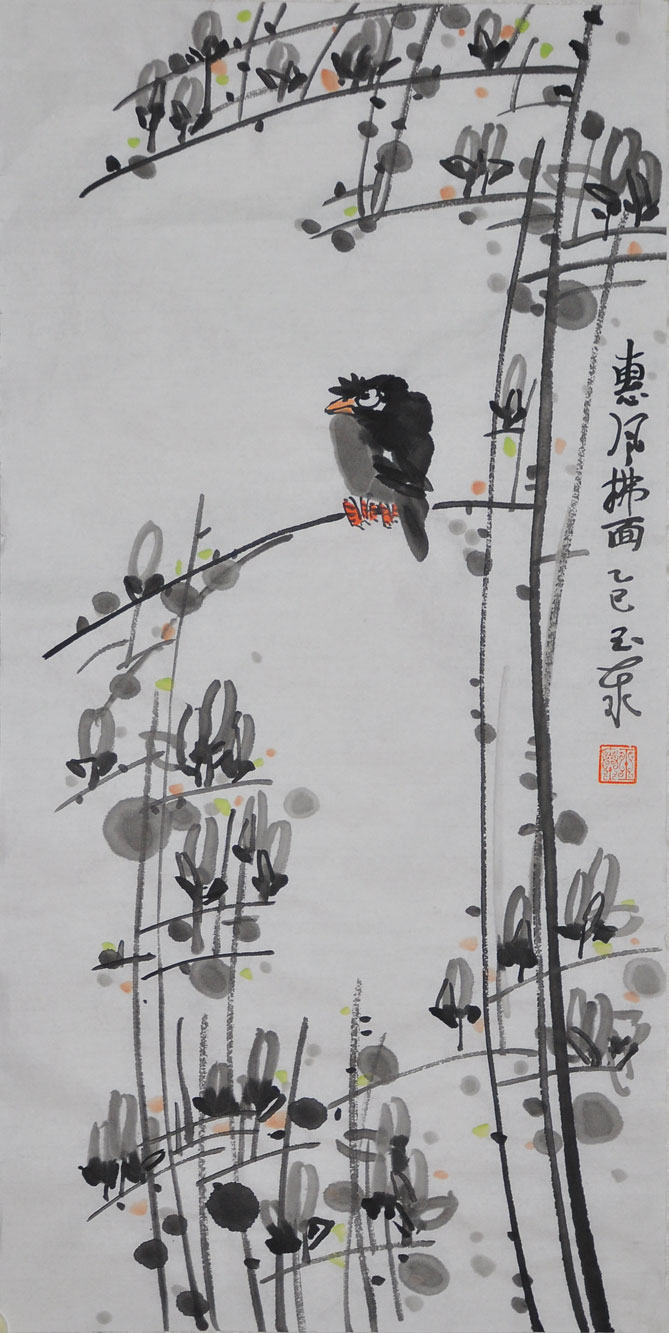 惠风拂面乙巳玉泉